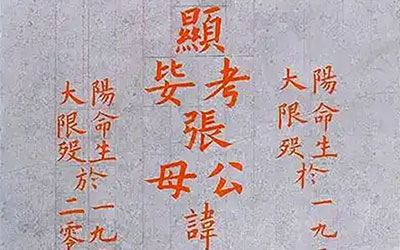 陽命生於一九
大限殁
顯考妣張公母諱
陽命生於一九
大限殁於二零